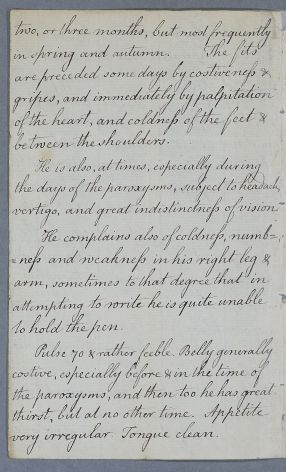 two, or three months, but most frequently
in spring and autumn. The fits
are preceded some days by costiveneſs &
gripes, and immediately by palpitation
of the heart, and coldneſs of the feet &
between the shoulders.
He is also, at times, especially during
the days of the paroxysms, subject to headach,
vertigo, and great indistinctneſs of vision.
He complains also of coldneſs, numb=
=neſs and weakneſs in his right leg &
arm, sometimes to that degree that in
attempting to write he is quite unable
to hold the pen.
Pulse 70 & rather feeble. Belly generally
costive, especially before & in the time of
the paroxysms, and then too he has great
thirst, but at no other time. Appetite
very irregular. Tongue clean.